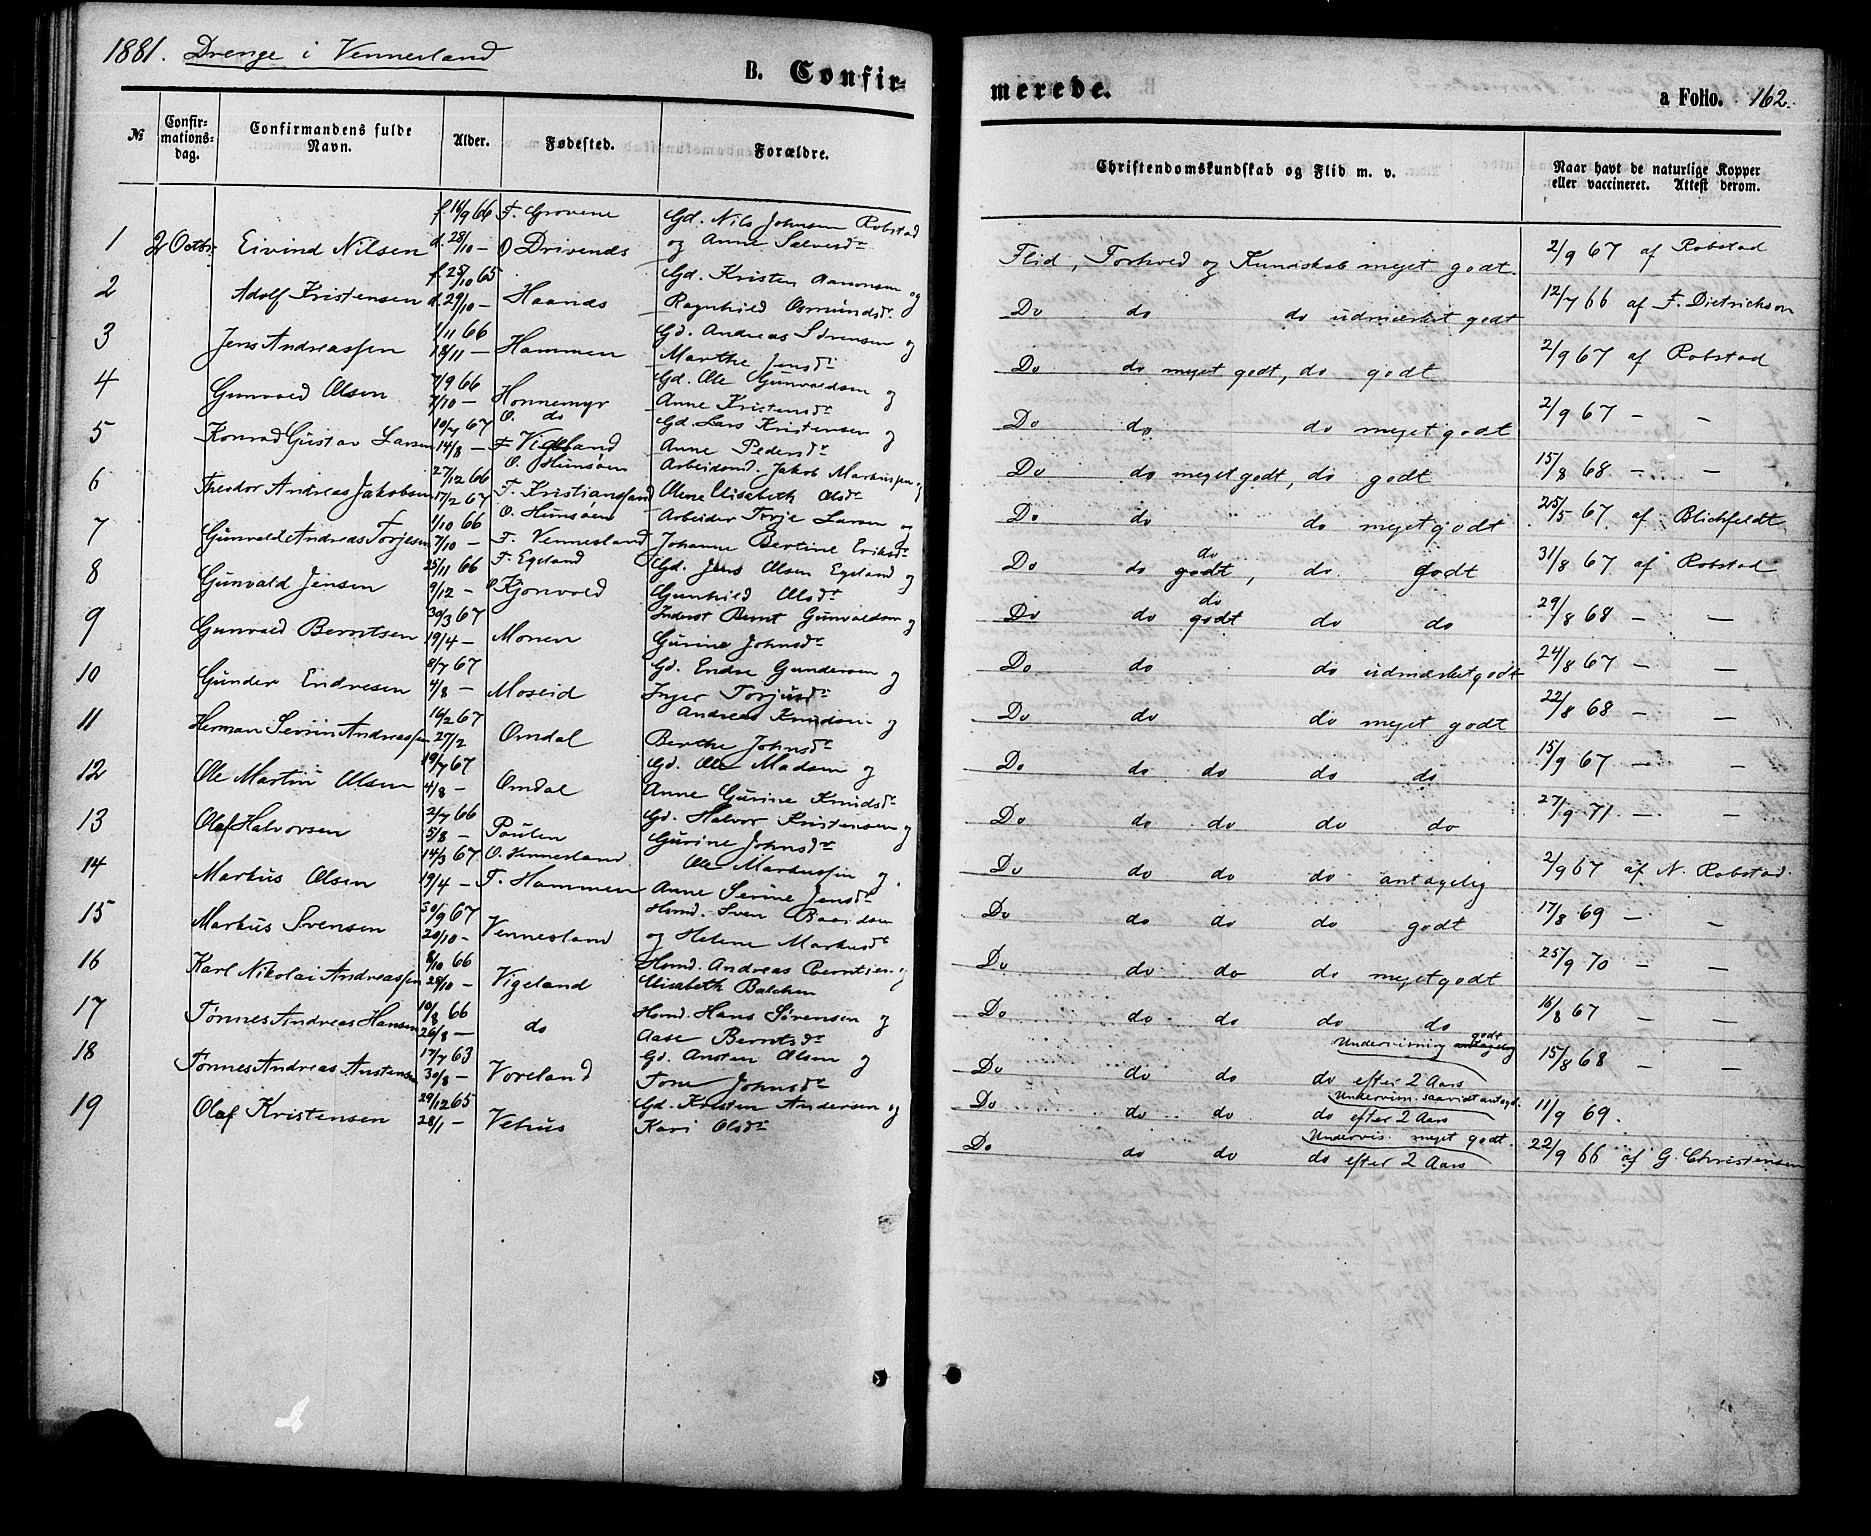 1881. Drenge i Vennesland
B. Confir-
merede.
a Folio. 162.
№
Confir-
mations-
dag.
Confirmandens fulde
Navn.
Alder.
Fødested.
Forældre.
Christendomskundskab og Flid m. v.
Naar havt de naturlige Kopper
eller vaccineret. Attest derom.
f. 16/9 66 F. Grovene Gd. Nils Johnsen Robstad
1 2 Octbr. Eivind Nilsen d. 28/10 — O Drivenes og Anne Salvesdr
Flid, Forhold og Kundskab meget godt. 2/9 67 af Robstad
f. 25/10 65 Gd. Kristen Aanonsen og
2 Adolf Kristensen d. 29/10 — Haanes Ragnhild Osmundsdr.
Do do do udmærket godt 12/7 66 af F. Dietrichson
1/11 66 Gd. Andreas Sørensen og
3 Jens Andreassen 18/11 — Hammen Marthe Jensdr
Do do meget godt, do godt 2/9 67 af Robstad
7/9 66 Gd. Ole Gunvaldsen og
4 Gunvald Olsen 7/10 — Honnemyr Anne Kristensdr
Do do do meget godt 2/9 67 — —
10/7 67 O. do Gd. Lars Kristensen og
5 Konrad Gustav Larsen 14/8 — F. Vigeland Anne Pedersdr
Do do meget godt, do godt 15/8 68 — —
27/12 66 O. Hunsøen Arbeidsmd. Jakob Markussen og
6 Theodor Andreas Jakobsen 17/2 67 F. Kristianssand Olene Elisabeth Olsdr
Do do " do meget godt 25/5 67 af Blichfeldt
1/10 66 O. Hunsøen Arbeider Torje Larsen og
7 Gunvald Andreas Torjesen 7/10 — F. Vennesland Johanne Bertine Eriksdr
Do do do godt, do. godt 31/8 67 af Robstad
25/11 66 F. Egeland Gd. Jens Olsen Egeland og
8 Gunvald Jensen 9/12 — O Kjonvold Gunhild Olsdr
Do do do godt do do 29/8 68 — —
30/3 67 Inderst Bernt Gunvaldsen og
9 Gunvald Berntsen 19/4 — Monen Gurine Johnsdr
Do do do udmærket godt 24/8 67 — —
8/7 67 Gd. Endre Gundersen og
10 Gunder Endresen 4/8 — Moseid Inger Torjusdr
Do do do meget godt 22/8 68 — —
16/2 67 Andreas Knudsen og
11 Herman Severin Andreassen 27/2 Omdal Berthe Johnsdr
Do do do do do 15/9 67 — —
19/7 67 Gd. Ole Madsen og
12 Ole Martin Olsen 4/8 — Omdal Anne Gurine Knudsdr
Do do do do do 27/9 71 — —
2/7 66 Gd. Halvor Kristensen og
13 Olaf Halvorsen 5/8 — Paulen Gurine Johnsdr
Do do do do antagelig 2/9 67 af N. Robstad.
14/3 67 O. Vennesland. Ole Markussen og.
14 Markus Olsen 19/4 — F. Hammen Anne Serine Jensdr
Do do do do godt 17/8 69 — —
30/9 67 Hsmd. Sven Baardsen
15 Markus Svensen 20/10 — Vennesland og Helene Markusdr
Do do do do meget godt 25/9 70 — —
8/10 66 Hsmd. Andreas Berntsen og
16 Karl Nikolai Andreassen 28/10 — Vigeland Elisabeth Balchen
Do do do do do 16/8 67 — —
10/8 66 Hsmd. Hans Sørensen og
17 Tønnes Andreas Hansen 26/8 — do Aase Berntsdr
godt
Undervisning antagelig
Do do do do efter 2 Aars 15/8 68 — —
17/7 63 Gd. Ansten Olsen og
18 Tønnes Andreas Anstensen 30/8 — Voreland Tone Johnsdr
Undervisn. saavidt antagl.
Do do do do efter 2 Aars 11/9 69.
29/12 65 Gd. Kristen Andersen og
19 Olaf Kristensen 28/1 — Vehus Kari Olsdr
Undervis. meget godt.
Do do do do efter 2 Aars 22/9 66 af G. Christensen